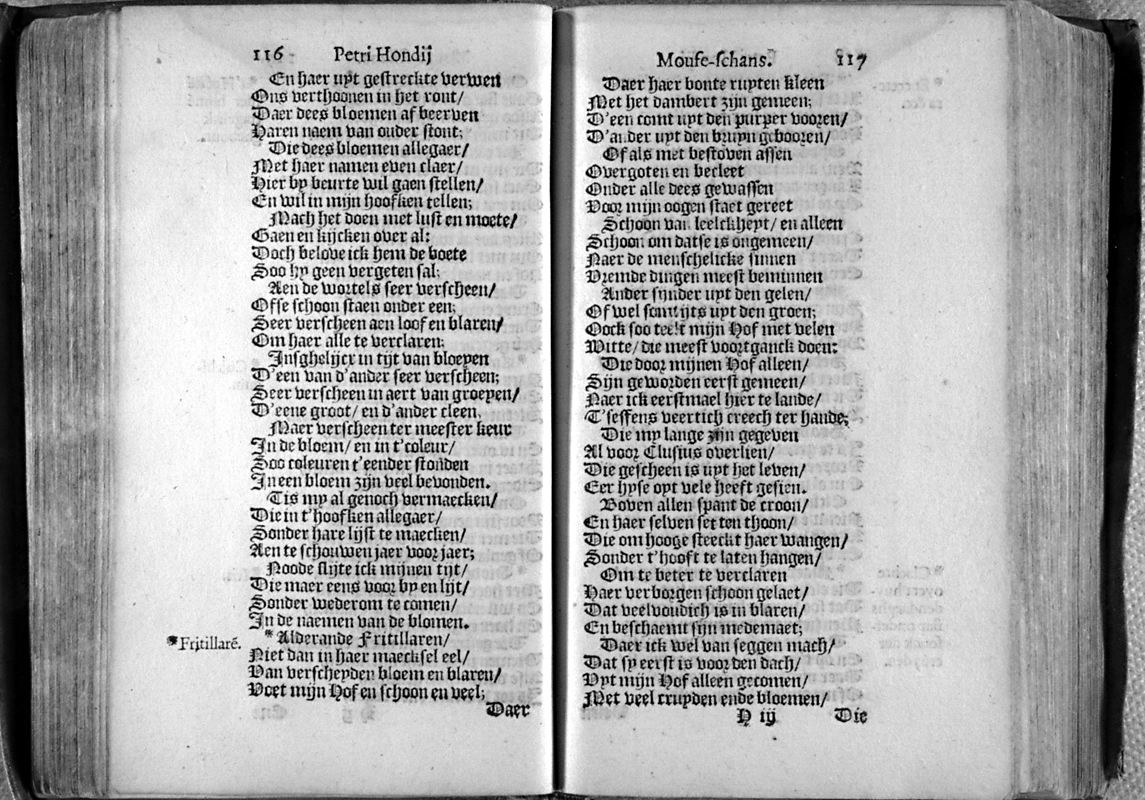 116 Petri Hondij
En haer uyt gestreckte verwen
Ons verthoonen in het ront/
Daer dees bloemen af beerven
Haren naem van ouder stont;
Die dees bloemen allegaer/
Met haer namen even claer/
Hier by beurte wil gaen stellen/
En wil in mijn hoofken tellen;
Mach het doen met lust en moete/
Gaen en kijcken over al:
Doch belove ick hem de boete
Soo hy geen vergeten sal;
Aen de wortels seer verscheen/
Ofse schoon staen onder een;
Seer verscheen aen loof en blaren/
Om haer alle te verclaren;
Insghelijcx in tijt van bloeyen
D'een van d'ander seer verscheen;
Seer verscheen in aert van groeyen/
D'eene groot/ en d'ander cleen.
Maer verscheen ter meester keur
In de bloem/ en in t'coleur/
Soo coleuren t'eender stonden
In een bloem zijn veel bevonden.
Tis my al genoch vermaecken/
Die in t'hoofken allegaer/
Sonder hare lijst te maecken/
Aen te schouwen jaer voor jaer;
Noode slijte ick mijnen tijt/
Die maer eens voor by en lijt/
Sonder wederom te comen/
In de naemen van de blomen.
*Fritillarē.
* Alderande Fritillaren/
Niet dan in haer maecksel eel/
Van verscheyden bloem en blaren/
Voet mijn Hof en schoon en veel;
Daer
Mouse-schans. 117
Daer haer bonte ruyten kleen
Met het dambert zijn gemeen;
D'een comt uyt den purper vooren/
D'ander uyt den bruyn gebooren/
Of als met bestoven assen
Overgoten en becleet
Onder alle dees gewassen
Voor mijn oogen staet gereet
Schoon van leelckheyt/ en alleen
Schoon om datse is ongemeen/
Naer de menschelicke sinnen
Vremde dingen meest beminnen
Ander synder uyt den gelen/
Of wel somtijts uyt den groen;
Oock soo teelt mijn Hof met velen
Witte/ die meest voortganck doen:
Die door mijnen Hof alleen/
Sijn geworden eerst gemeen/
Naer ick eerstmael hier te lande/
T'seffens veertich creech ter hande;
Die my lange zijn gegeven
Al voor Clusius overlien/
Die gescheen is uyt het leven/
Eer hyse oyt vele heeft gesien.
Boven allen spant de croon/
En haer selven set ten thoon/
Die om hooge steeckt haer wangen/
Sonder t'hooft te laten hangen/
Om te beter te verclaren
Haer verborgen schoon gelaet/
Dat veelvoudich is in blaren/
En beschaemt sijn medemaet;
Daer ick wel van seggen mach/
Dat sy eerst is voor den dach/
Uyt mijn Hof alleen gecomen/
Met veel cruyden ende bloemen/
H iij Die